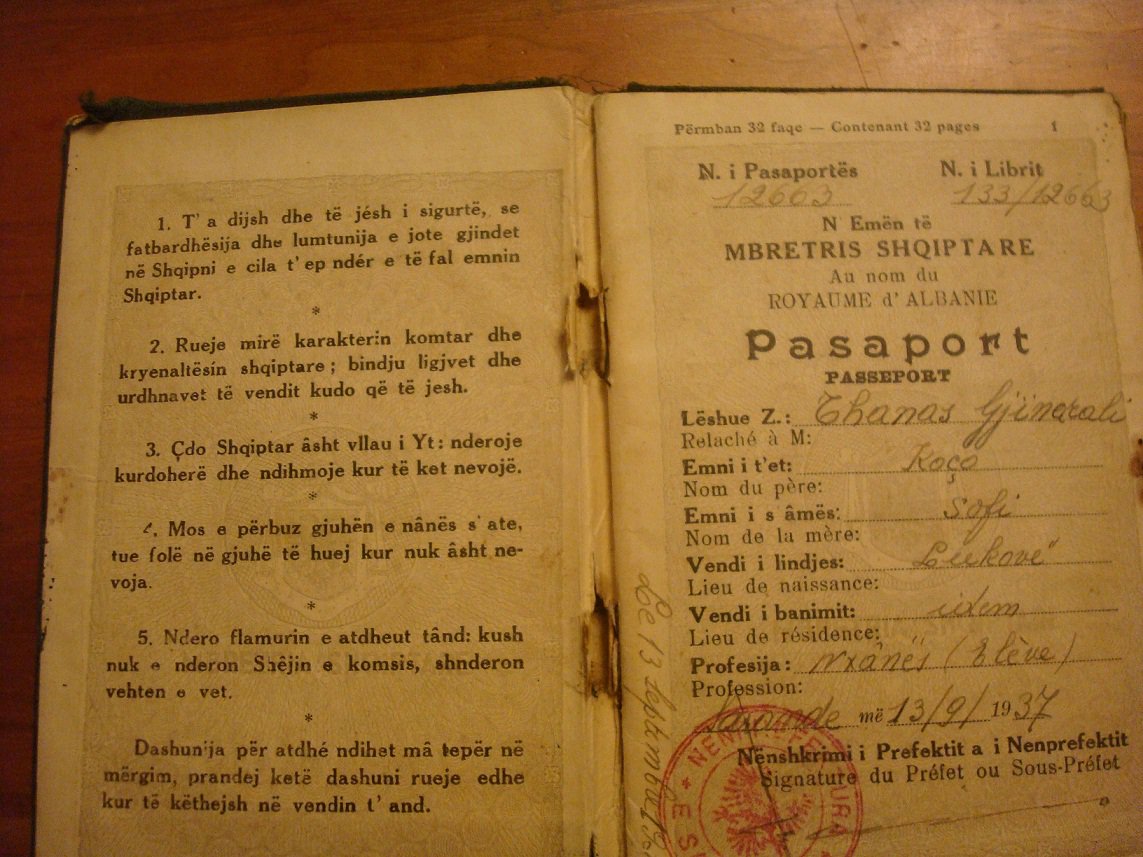 1. T' a dijsh dhe të jésh i sigurtë, se
fatbardhësija dhe lumtunija e jote gjindet
në Shqipni e cila t' ep ndér e të fal emnin
Shqiptar.
*
2. Rueje mirë karakterin komtar dhe
kryenaltësín shqiptare ; bindju ligjvet dhe
urdhnavet të vendit kudo që të jesh.
*
3. Çdo Shqiptar âsht vllau i Yt : nderoje
kurdoherë dhe ndihmoje kur të ket nevojë.
*
4. Mos e përbuz gjuhën e nânës s' ate,
tue folë në gjuhë të huej kur nuk âsht ne-
voja.
*
5. Ndero flamurin e atdheut tând: kush
nuk e nderon Shêjin e komsis, shnderon
vehten e vet.
*
Dashunija për atdhé ndihet mâ tepër në
mërgim, prandej ketë dashuni rueje edhe
kur të këthejsh në vendin t' and.
Përmban 32 faqe — Contenant 32 pages 1
N. i Pasaportës N. i Librit
12663 133/12663
N' Emën të
MBRETRIS SHQIPTARE
Au nom du
ROYAUME d' ALBANIE
Pasaport
PASSEPORT
Lëshue Z.: Thanas Gjinarali
Relaché à M:
Emni i t'et: Koço
Nom du père:
Emni i s âmës: Sofi
Nom de la mère:
Vendi i lindjes: Lukovë
Lieu de naissance:
Vendi i banimit: idem
Lieu de résidence:
Profesija: nxânës (Elève)
Profession:
Sarande më 13/9/ 1937
Nënshkrimi i Prefektit a i Nenprefektit
Signature du Préfet ou Sous-Préfet
Le 13 septembre